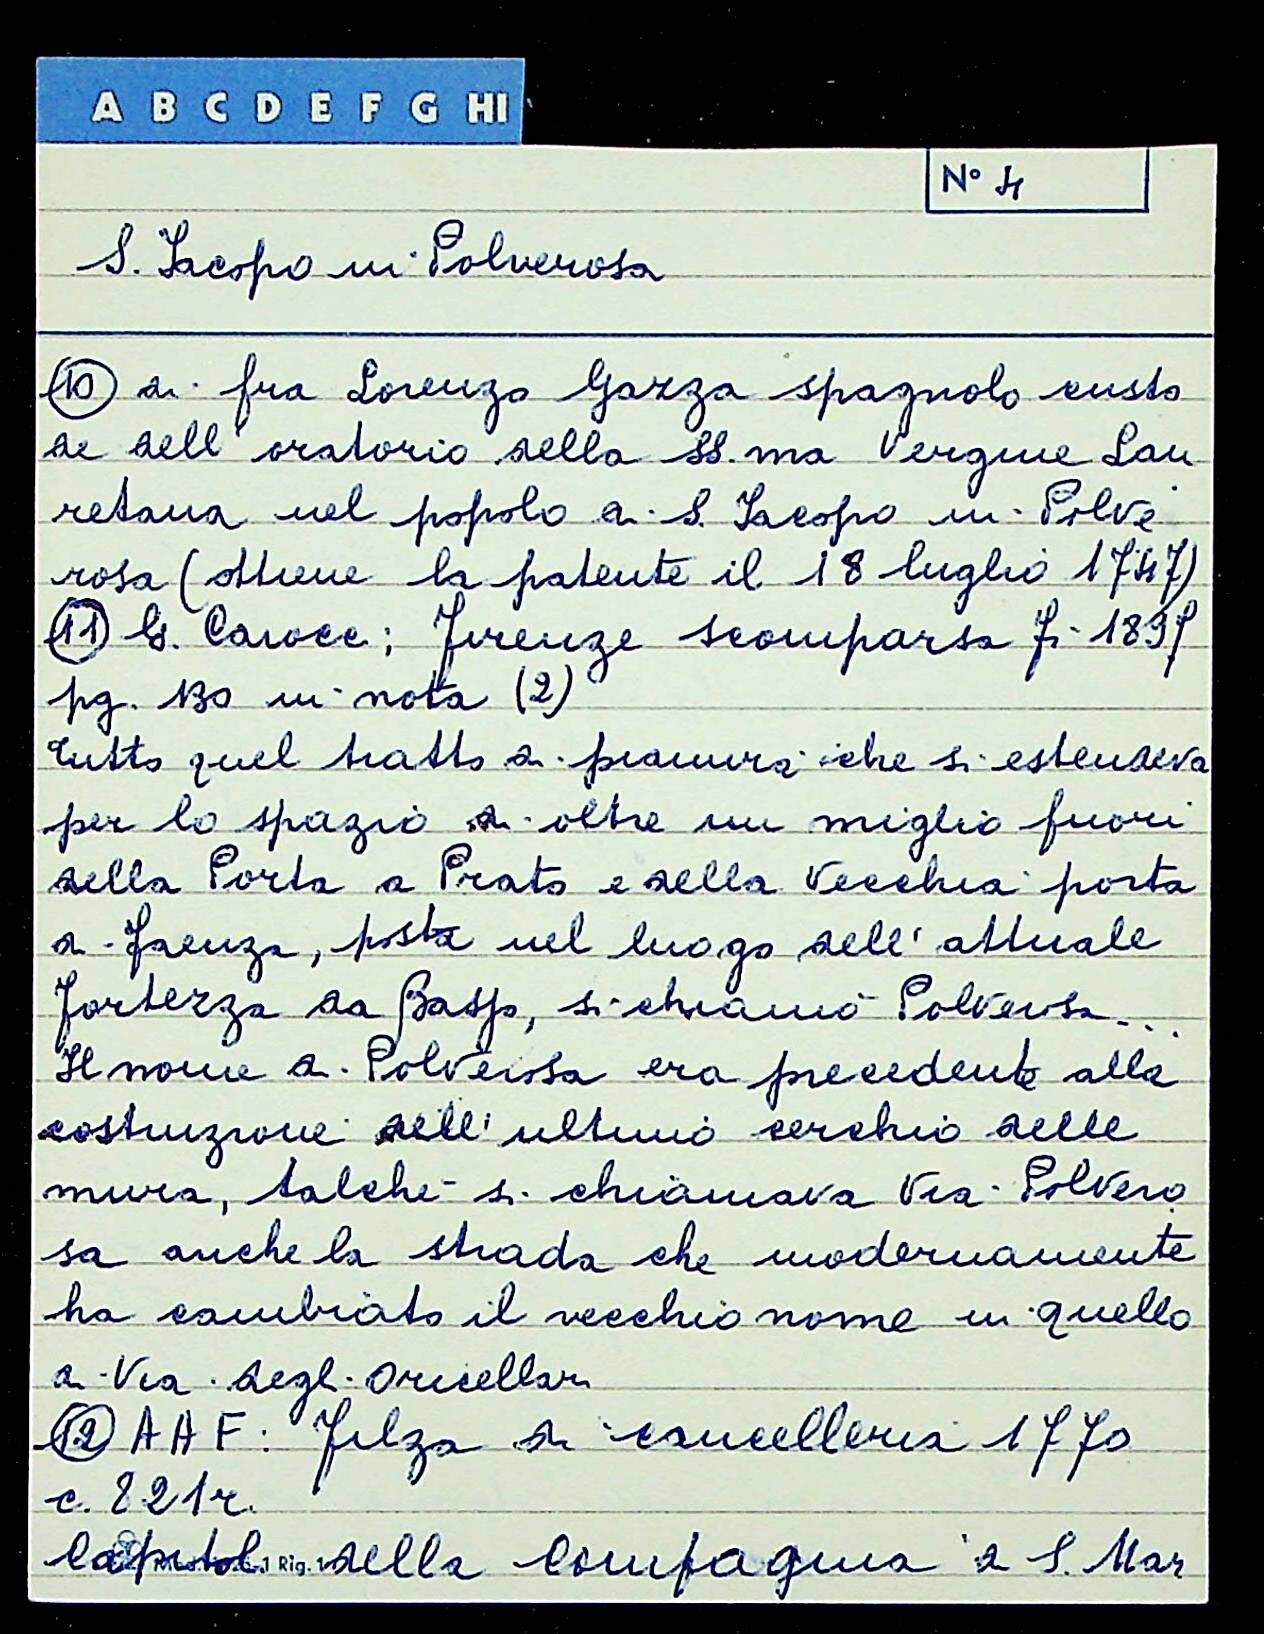 A B C D E F G HI
N° 4
S. Iacopo in Polverosa
(10) di fra Lorenzo Garza spagnolo custo
de dell'oratorio della SS.ma Vergine Lau
retana nel popolo di S. Iacopo in Polve
rosa (ottiene la patente il 18 luglio 1747)
(11) G. Carocci; Firenze scomparsa Fi 1897
pg. 130 in nota (2)
Tutto quel tratto di pianura che si estendeva
per lo spazio di oltre un miglio fuori
della Porta a Prato e della Vecchia porta
a Faenza, posta nel luogo dell'attuale
Fortezza da Basso, si chiamò Polverosa...
Il nome di Polverosa era precedente alla
costruzione dell'ultimo cerchio delle
mura, talché si chiamava Via Polvero
sa anche la strada che modernamente
ha cambiato il vecchio nome in quello
di Via degli Oricellari
(12) A A F: Filza di cancelleria 1770
c. 821r.
Capitoli della Compagnia di S. Mar